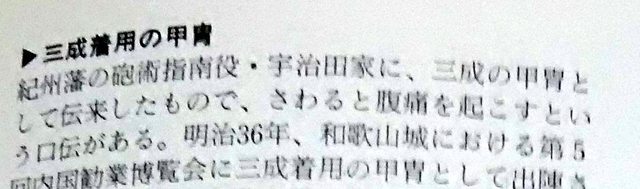 ▶三成着用の甲冑
紀州藩の砲術指南役・宇治田家に、三成の甲冑と
して伝来したもので、さわると腹痛を起こすとい
う口伝がある。明治36年、和歌山城における第5
回内国勧業博覧会に三成着用の甲冑として出陳さ